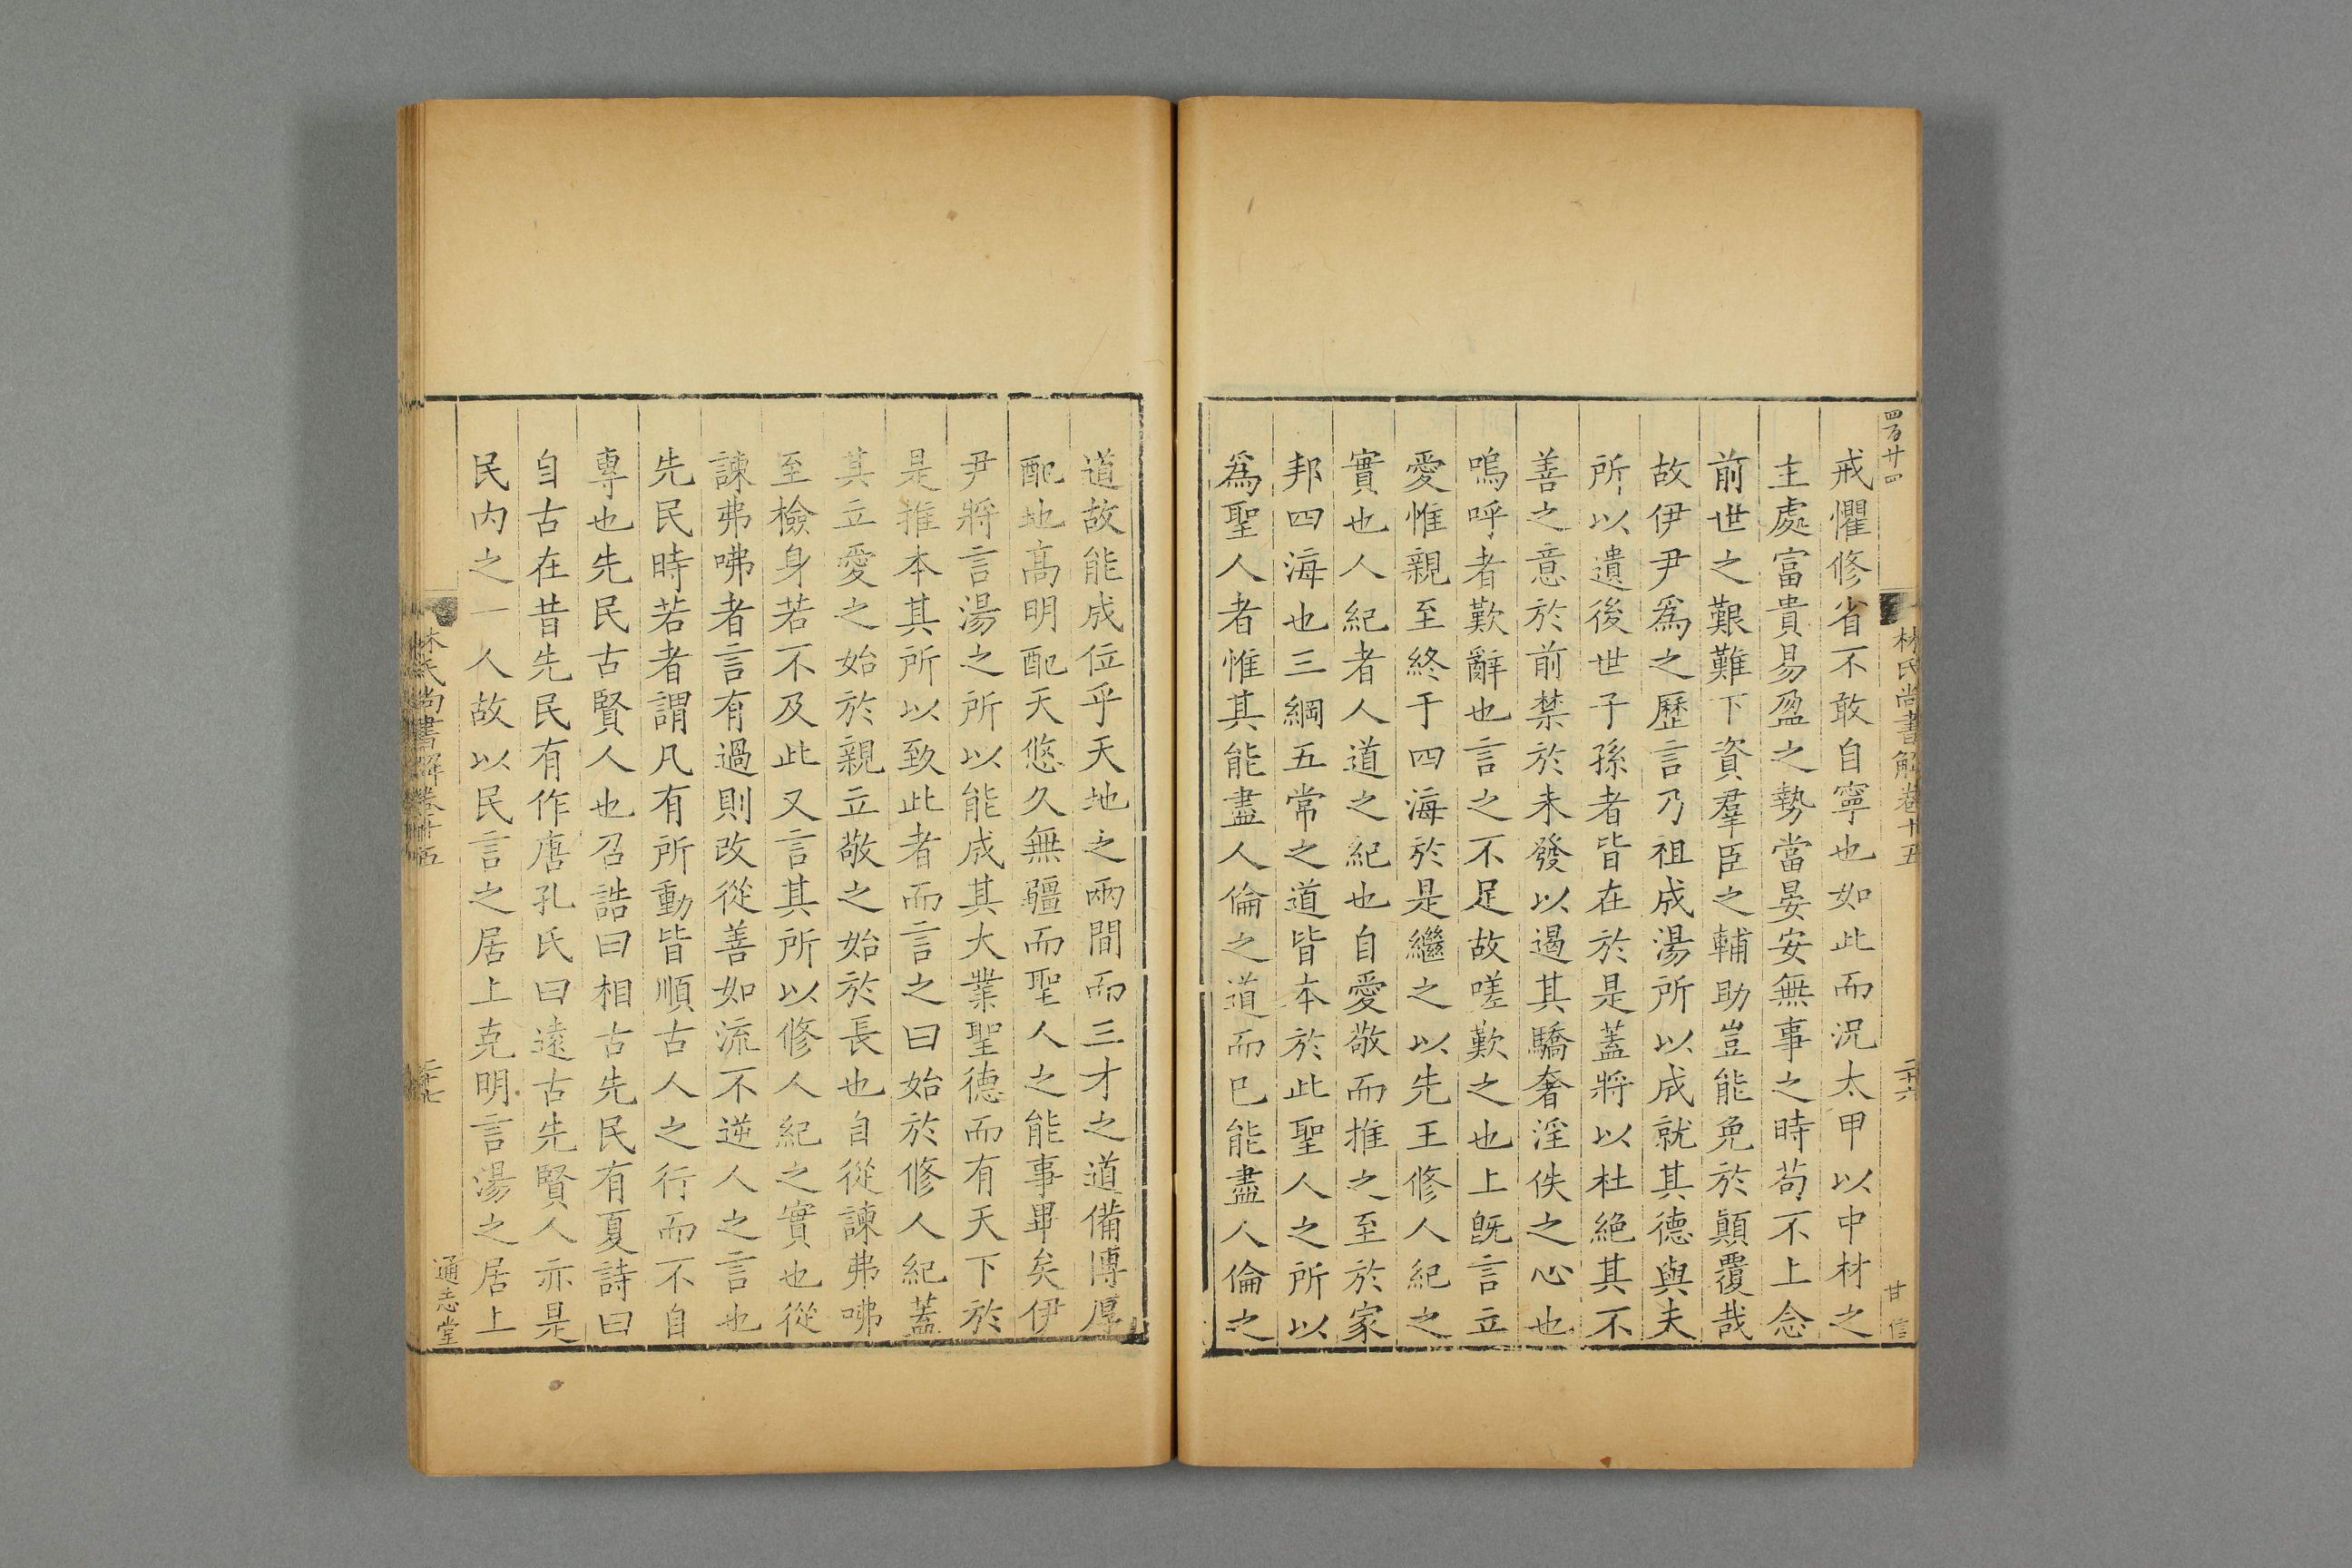 四百廿四
林氏尚書解卷十五
二十六
甘 信
戒懼修省不敢自寧也如此而況太甲以中材之
主處富貴易盈之勢當晏安無事之時茍不上念
前世之艱難下資羣臣之輔助豈能免於顛覆哉
故伊尹爲之歷言乃祖成湯所以成就其德與夫
所以遺後世子孫者皆在於是蓋將以杜絶其不
善之意於前禁於未發以遏其驕奢淫佚之心也
嗚呼者歎辭也言之不足故嗟歎之也上旣言立
愛惟親至終于四海於是繼之以先王修人紀之
實也人紀者人道之紀也自愛敬而推之至於家
邦四海也三綱五常之道皆本於此聖人之所以
爲聖人者惟其能盡人倫之道而已能盡人倫之
道故能成位乎天地之兩間而三才之道備博厚
配地高明配天悠久無疆而聖人之能事畢矣伊
尹將言湯之所以能成其大業聖德而有天下於
是推本其所以致此者而言之曰始於修人紀蓋
其立愛之始於親立敬之始於長也自從諫弗咈
至檢身若不及此又言其所以修人紀之實也從
諫弗咈者言有過則改從善如流不逆人之言也
先民時若者謂凡有所動皆順古人之行而不自
專也先民古賢人也召誥曰相古先民有夏詩曰
自古在昔先民有作唐孔氏曰遠古先賢人亦是
民内之一人故以民言之居上克明言湯之居上
林氏尚書解卷十五
二十七
通志堂